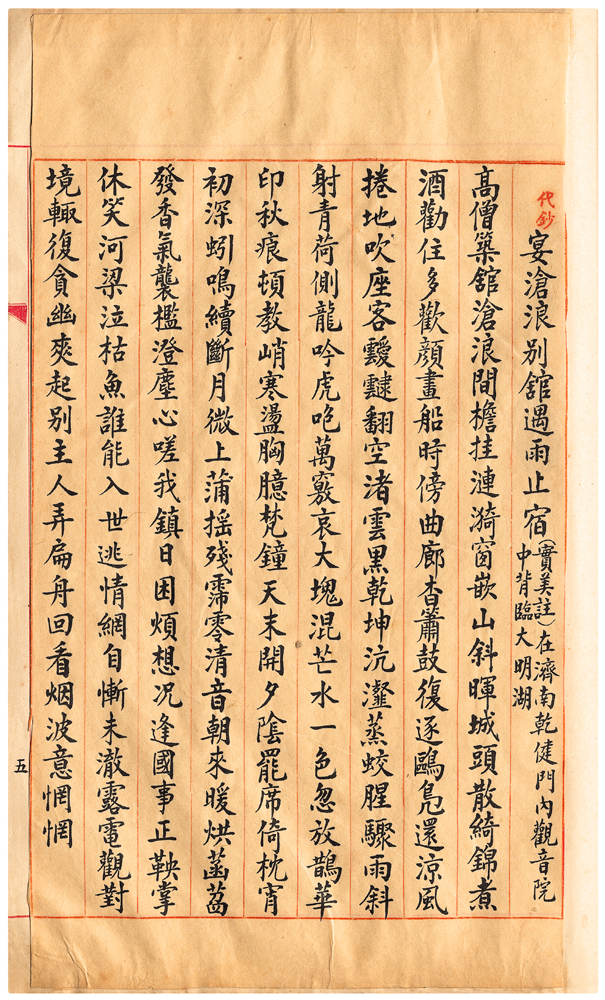 代鈔
宴滄浪別舘遇雨止宿
(實美註)在濟南乾健門內觀音院
中背臨大明湖
高僧築舘滄浪間檐挂漣漪窗嵌山斜暉城頭散綺錦煮
酒勸住多歡顏畫船時傍曲廊杳簫鼓復逐鷗鳧還涼風
捲地吹座客靉靆翻空渚雲黑乾坤沆瀣蒸蛟腥驟雨斜
射青荷側龍吟虎咆萬竅哀大塊混芒水一色忽放鵲華
印秋痕頓教峭寒盪胸臆梵鐘天末開夕陰罷席倚枕宵
初深蚓鳴續斷月微上蒲搖殘霈零清音朝來暖烘菡萏
發香氣襲檻澄塵心嗟我鎮日困煩想況逢國事正鞅掌
休笑河梁泣枯魚誰能入世逃情網自慚未澈露電觀對
境輒復貪幽爽起別主人弄扁舟回看烟波意惘惘
五